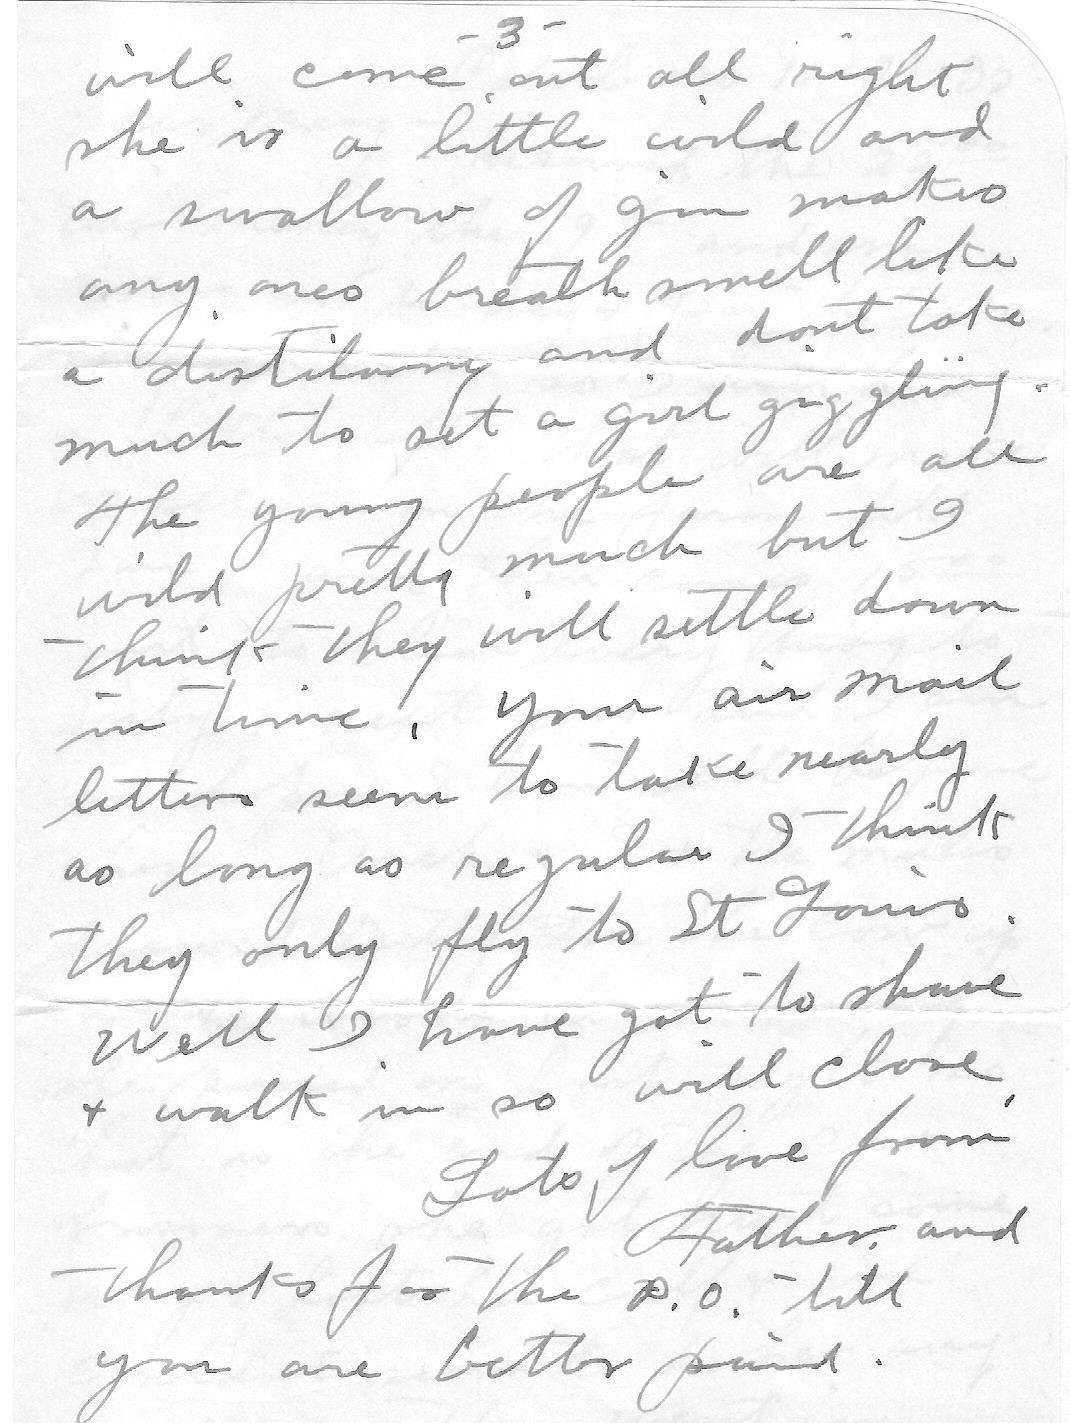 -3-
will come out all right
she is a little wild and
a swallow of gin makes
any ones breath smell like
a distillary and dont take
much to set a girl giggling.
The young people are all
wild pretty much but I
think they will settle down
in time. Your air mail
letters seem to take nearly
as long as regular I think
they only fly to St Louis.
Well I have got to shave
+ walk in so will close,
Lots of love from
Father. and
thanks for the P.O. till
you are better paid.